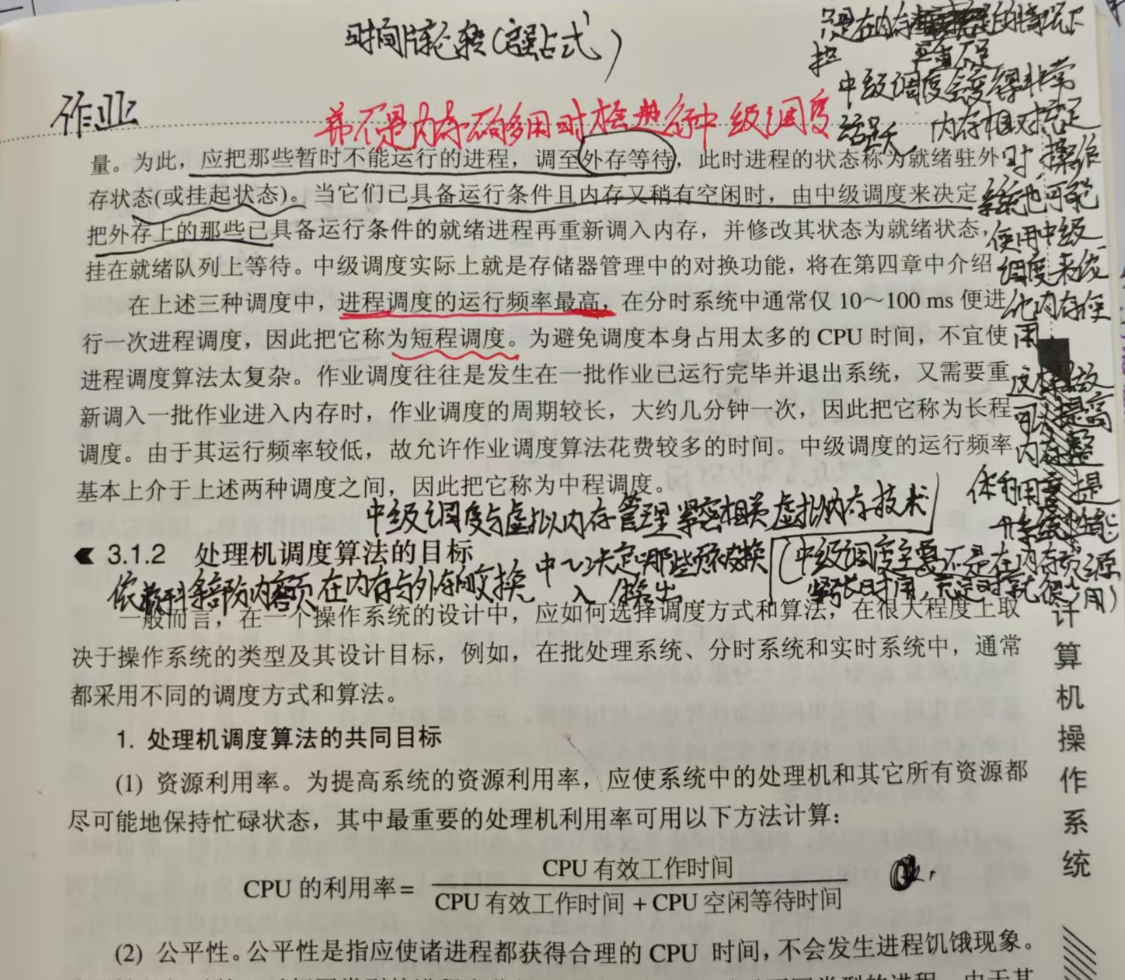 时间片轮转(抢占式)
作业
并不是内存不够用时才进行中级调度
中级调度会变得非常
活跃, 内存相对充足
时操作
系统也可能
使用中级
调度来优
化内存使
用
量。为此，应把那些暂时不能运行的进程，调至外存等待，此时进程的状态称为就绪驻外
存状态(或挂起状态)。当它们已具备运行条件且内存又稍有空闲时，由中级调度来决定，
把外存上的那些已具备运行条件的就绪进程再重新调入内存，并修改其状态为就绪状态，
挂在就绪队列上等待。中级调度实际上就是存储器管理中的对换功能，将在第四章中介绍
在上述三种调度中，进程调度的运行频率最高，在分时系统中通常仅 10～100 ms 便进
行一次进程调度，因此把它称为短程调度。为避免调度本身占用太多的 CPU 时间，不宜使
进程调度算法太复杂。作业调度往往是发生在一批作业已运行完毕并退出系统，又需要重
新调入一批作业进入内存时，作业调度的周期较长，大约几分钟一次，因此把它称为长程
调度。由于其运行频率较低，故允许作业调度算法花费较多的时间。中级调度的运行频率
基本上介于上述两种调度之间，因此把它称为中程调度。
这样做
可以提高
内存整
体利用率提
升系统性能
中级调度与虚拟内存管理紧密相关 虚拟内存技术
3.1.2 处理机调度算法的目标
在内存与外存间交换 决定哪些页被换
入
(中级调度主要还是在内存资源
紧张时用，充足时就很少用)
一般而言，在一个操作系统的设计中，应如何选择调度方式和算法，在很大程度上取
决于操作系统的类型及其设计目标，例如，在批处理系统、分时系统和实时系统中，通常
都采用不同的调度方式和算法。
1. 处理机调度算法的共同目标
(1) 资源利用率。为提高系统的资源利用率，应使系统中的处理机和其它所有资源都
尽可能地保持忙碌状态，其中最重要的处理机利用率可用以下方法计算：
CPU 的利用率＝ CPU 有效工作时间
CPU 有效工作时间＋CPU 空闲等待时间
(2) 公平性。公平性是指应使诸进程都获得合理的 CPU 时间，不会发生进程饥饿现象。
计算机操作系统